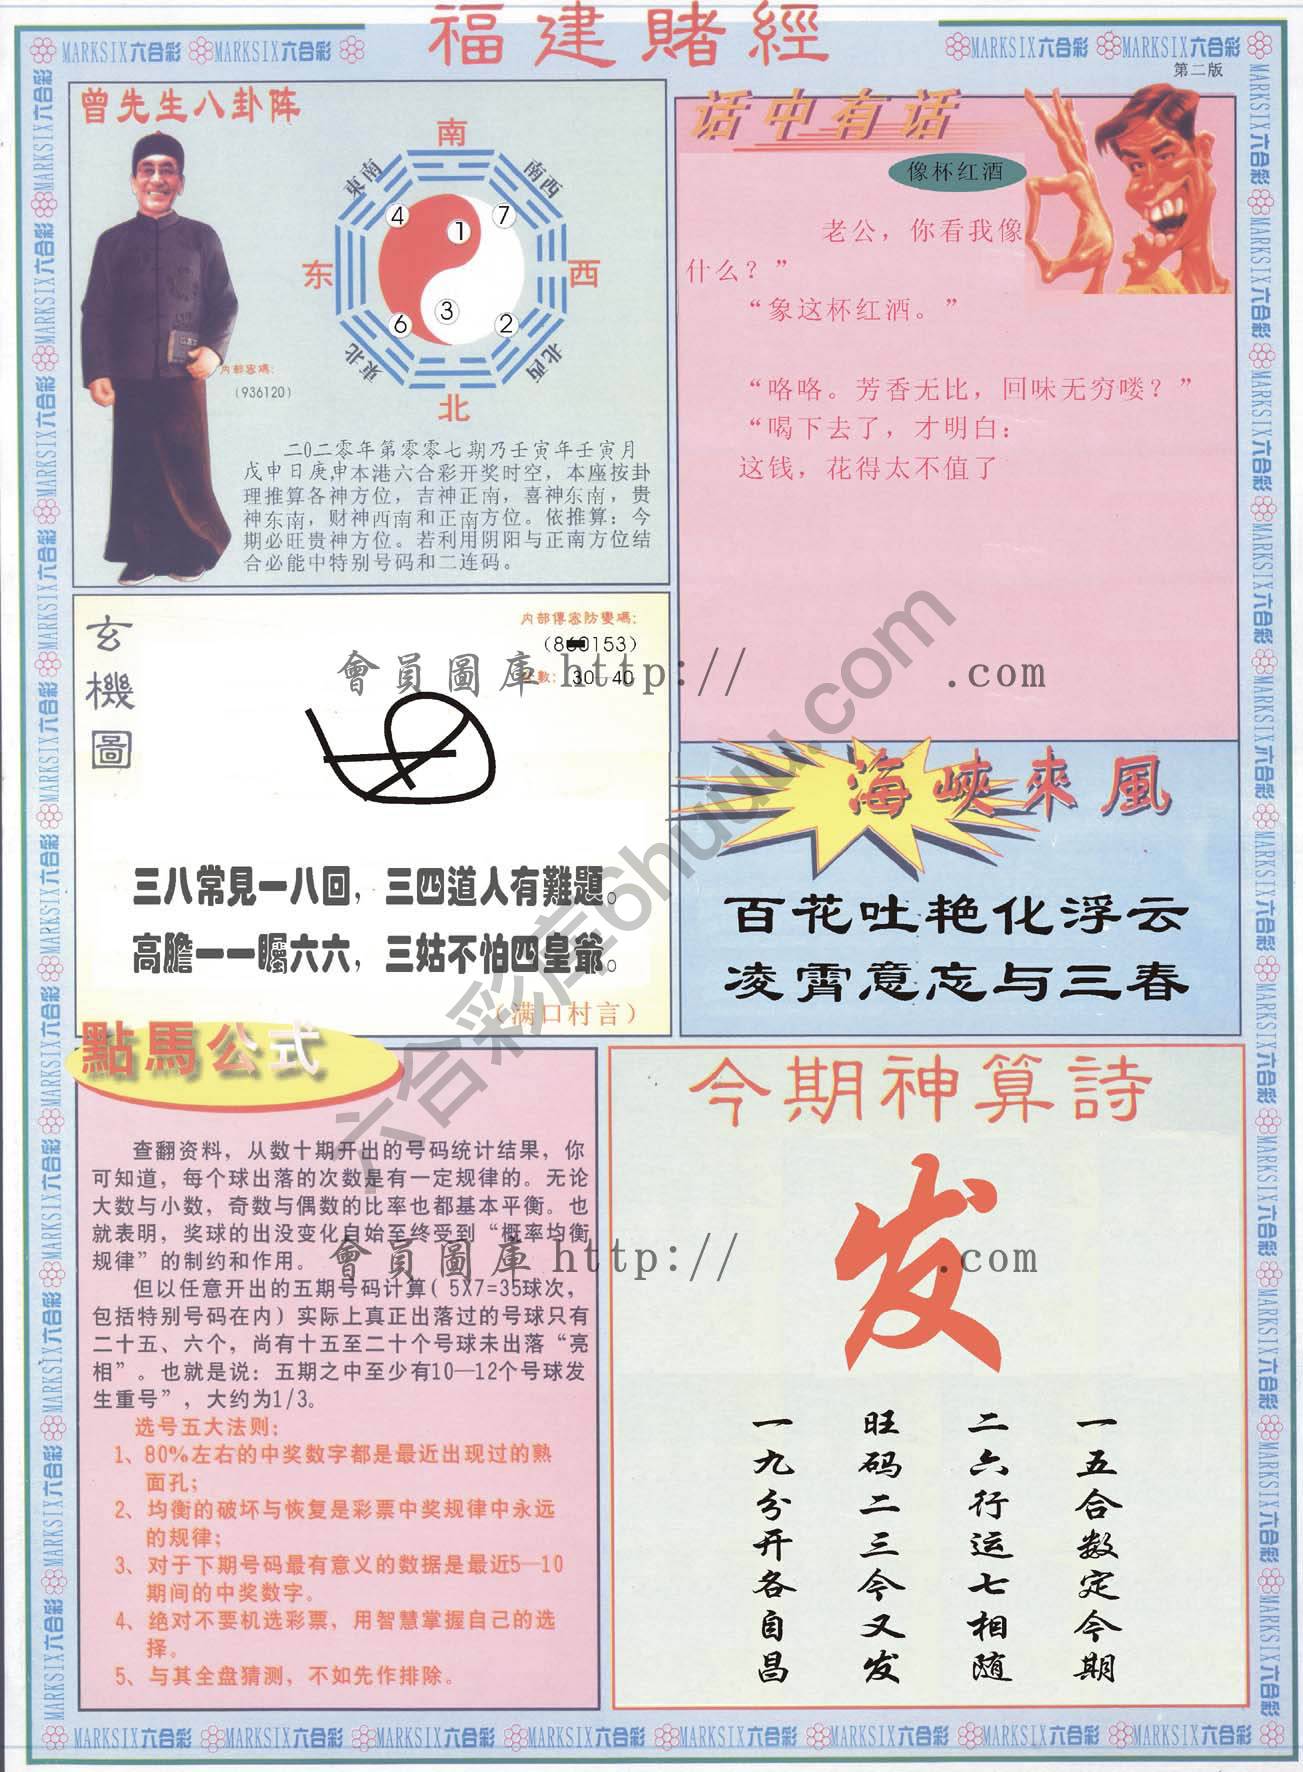 福建賭經
MARKSIX六合彩 MARKSIX六合彩
MARKSIX六合彩 MARKSIX六合彩
第二版
曾先生八卦阵
南
東南
南西
4
7
1
东
西
3
6
2
東北
北西
北
内部密碼:
(936120)
二0二零年第零零七期乃壬寅年壬寅月
戊申日庚申本港六合彩开奖时空，本座按卦
理推算各神方位，吉神正南，喜神东南，贵
神东南，财神西南和正南方位。依推算：今
期必旺贵神方位。若利用阴阳与正南方位结
合必能中特别号码和二连码。
话中有话
像杯红酒
老公，你看我像
什么？”
“象这杯红酒。”
“咯咯。芳香无比，回味无穷喽？”
“喝下去了，才明白：
这钱，花得太不值了
玄機圖
内部傳密防變碼:
(8 0153)
數: 30-40
會員圖庫 http:// .com
三八常見一八回，三四道人有難題。
高膽一一矚六六，三姑不怕四皇爺。
（满口村言）
海峽來風
百花吐艳化浮云
凌霄意忘与三春
六合彩库6huuu.com
點馬公式
查翻资料，从数十期开出的号码统计结果，你
可知道，每个球出落的次数是有一定规律的。无论
大数与小数，奇数与偶数的比率也都基本平衡。也
就表明，奖球的出没变化自始至终受到“概率均衡
规律”的制约和作用。
但以任意开出的五期号码计算( 5X7=35球次，
包括特别号码在内）实际上真正出落过的号球只有
二十五、六个，尚有十五至二十个号球未出落“亮
相”。也就是说：五期之中至少有10—12个号球发
生重号”，大约为1/3。
选号五大法则：
1、80%左右的中奖数字都是最近出现过的熟
面孔；
2、均衡的破坏与恢复是彩票中奖规律中永远
的规律；
3、对于下期号码最有意义的数据是最近5—10
期间的中奖数字。
4、绝对不要机选彩票，用智慧掌握自己的选
择。
5、与其全盘猜测，不如先作排除。
今期神算詩
會員圖庫 http:// .com
发
一五合数定今期
二六行运七相随
旺码二三今又发
一九分开各自昌
MARKSIX六合彩 MARKSIX六合彩 MARKSIX六合彩 MARKSIX六合彩 MARKSIX六合彩 MARKSIX六合彩 MARKSIX六合彩 MARKSIX六合彩